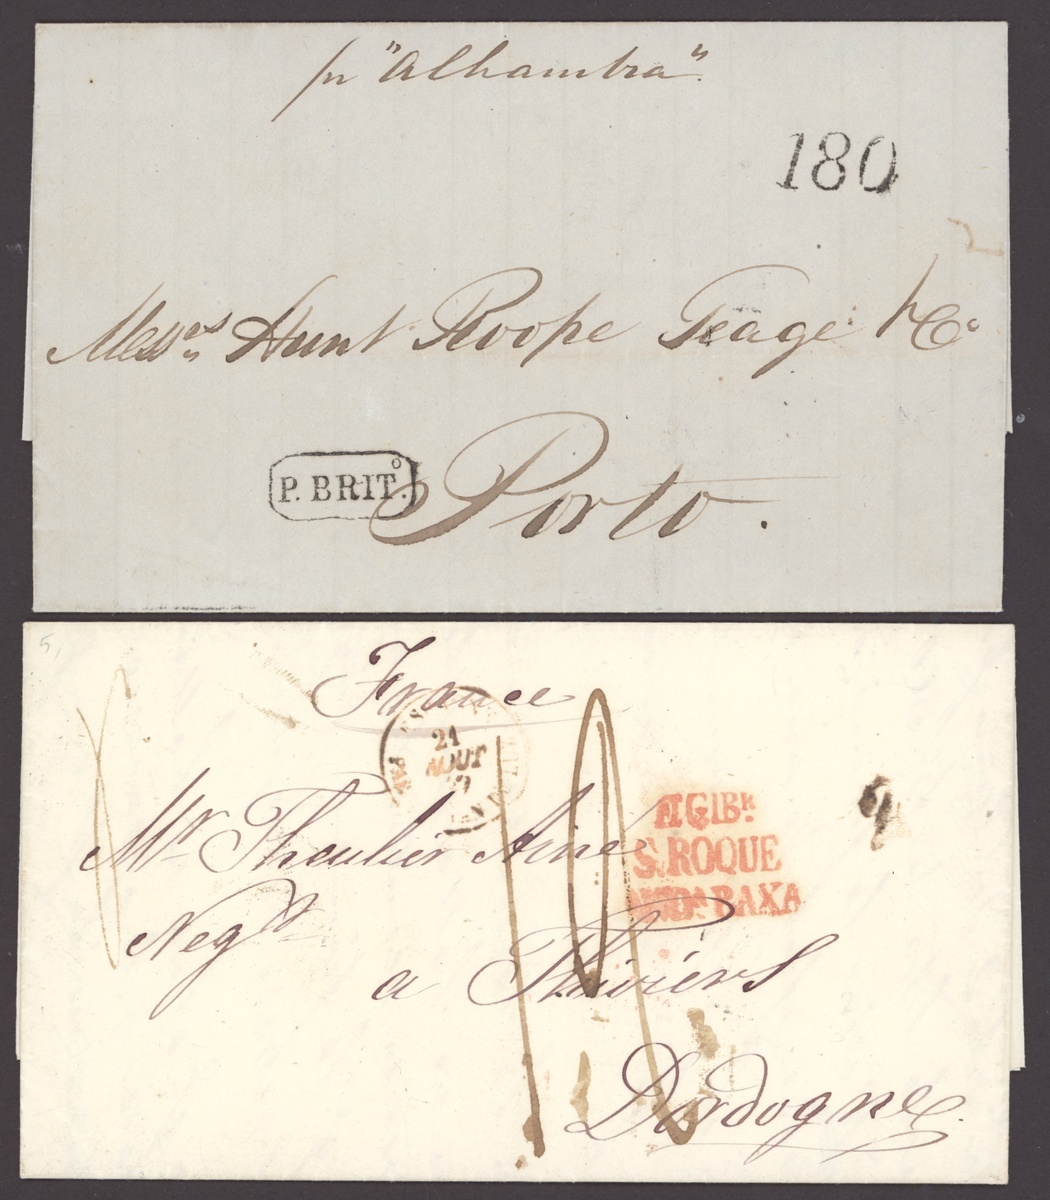 pr "Alhambra"
180
Messrs Hunt Roope Teage & Co
P. BRITº.
Porto.
5,
France
21
AOUT
Mr Theulier Ainé
GIBR
S. ROQUE
ANDA BAXA
Negt
a Thiviers
Dordogne